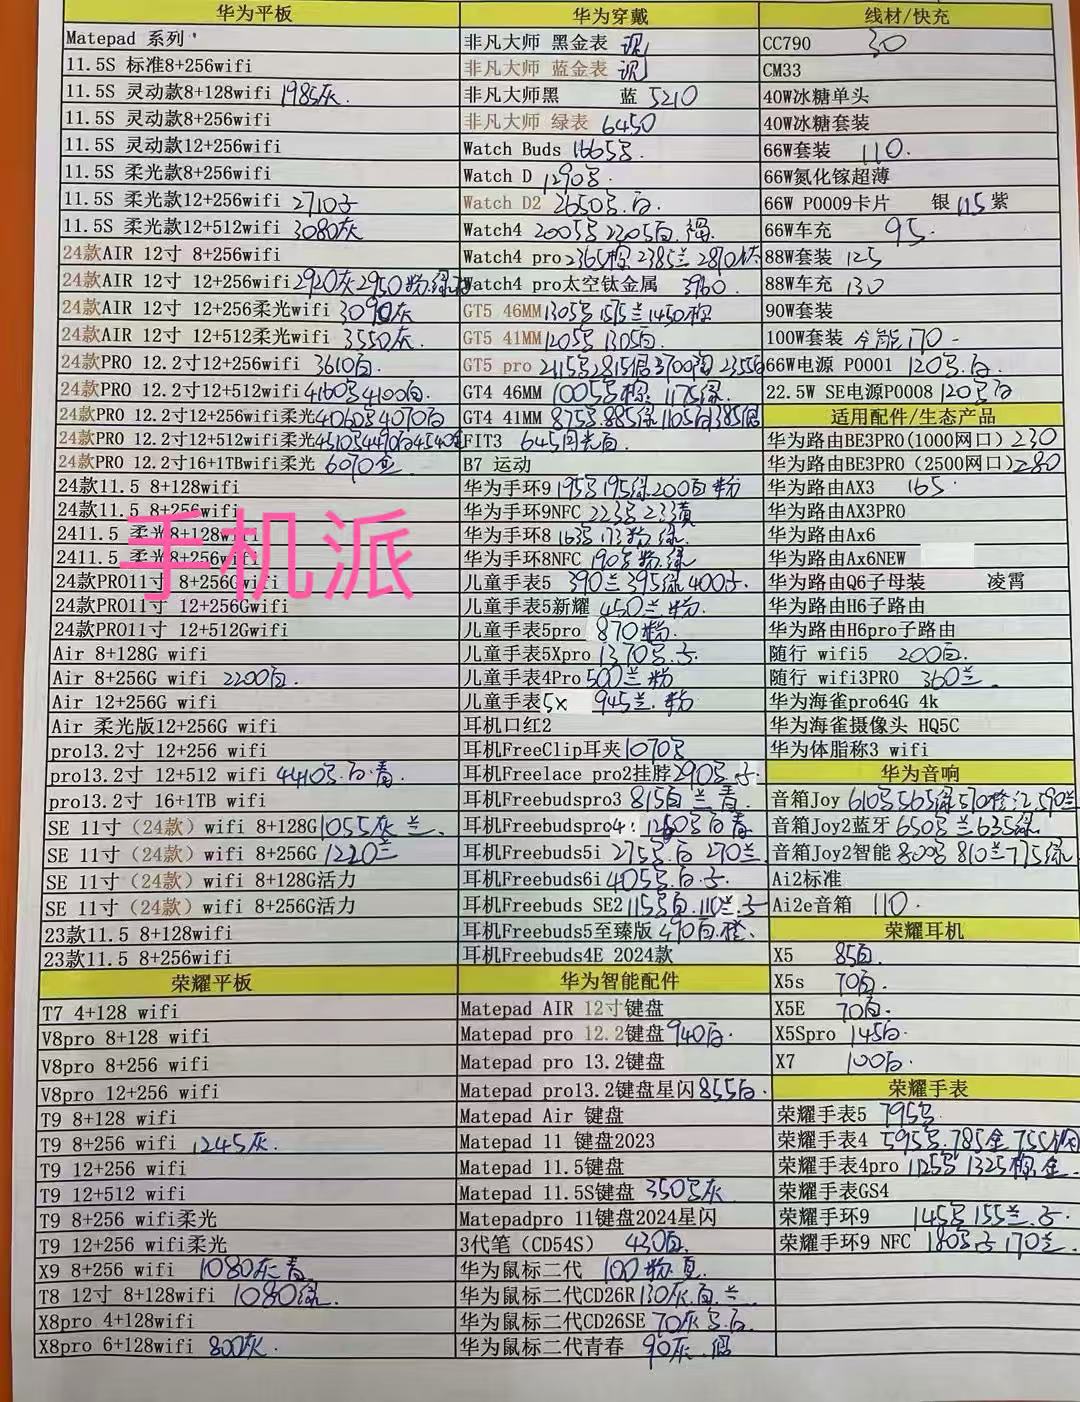 华为平板
Matepad 系列
11.5S 标准8+256wifi
11.5S 灵动款8+128wifi 1985灰.
11.5S 灵动款8+256wifi
11.5S 灵动款12+256wifi
11.5S 柔光款8+256wifi
11.5S 柔光款12+256wifi 2710
11.5S 柔光款12+512wifi 3080灰
24款AIR 12寸 8+256wifi
24款AIR 12寸 12+256wifi 2920灰2950粉.绿
24款AIR 12寸 12+256柔光wifi 3090灰
24款AIR 12寸 12+512柔光wifi 3550灰.
24款PRO 12.2寸12+256wifi 3610白
24款PRO 12.2寸12+512wifi 4100白
24款PRO 12.2寸12+256wifi柔光 4070白
24款PRO 12.2寸12+512wifi柔光
24款PRO 12.2寸16+1TBwifi柔光 6070金
24款11.5 8+128wifi
24款11.5 8+256wifi
2411.5 柔光8+128wifi
2411.5 柔光8+256wifi
24款PRO11寸 8+256Gwifi
24款PRO11寸 12+256Gwifi
24款PRO11寸 12+512Gwifi
Air 8+128G wifi
Air 8+256G wifi 2200白.
Air 12+256G wifi
Air 柔光版12+256G wifi
pro13.2寸 12+256 wifi
pro13.2寸 12+512 wifi 4410 白.青.
pro13.2寸 16+1TB wifi
SE 11寸(24款) wifi 8+128G 1055灰 兰.
SE 11寸(24款) wifi 8+256G 1220兰
SE 11寸(24款) wifi 8+128G活力
SE 11寸(24款) wifi 8+256G活力
23款11.5 8+128wifi
23款11.5 8+256wifi
荣耀平板
T7 4+128 wifi
V8pro 8+128 wifi
V8pro 8+256 wifi
V8pro 12+256 wifi
T9 8+128 wifi
T9 8+256 wifi 1245灰.
T9 12+256 wifi
T9 12+512 wifi
T9 8+256 wifi柔光
T9 12+256 wifi柔光
X9 8+256 wifi 1080灰青
T8 12寸 8+128wifi 1080绿.
X8pro 4+128wifi
X8pro 6+128wifi 800灰.
华为穿戴
非凡大师 黑金表 议
非凡大师 蓝金表 议
非凡大师黑 蓝 5210
非凡大师 绿表 6450
Watch Buds 1665
Watch D 1290
Watch D2 2650 白.
Watch4 2005 2205白.
Watch4 pro 2365棕 2385兰 2870钛
Watch4 pro太空钛金属 3960
GT5 46MM 1305 1515兰1450棕
GT5 41MM 1205 1305白.
GT5 pro 2115
GT4 46MM 1005 棕. 1175绿.
GT4 41MM 875 885绿
FIT3 645月光白.
B7 运动
华为手环9 195 195绿200白 粉
华为手环9NFC 223
华为手环8 163 173粉.绿.
华为手环8NFC 190 粉.绿.
儿童手表5 390兰395绿400
儿童手表5新耀 450兰粉.
儿童手表5pro 870粉.
儿童手表5Xpro 1370
儿童手表4Pro 500兰粉
儿童手表5x 945兰.粉
耳机口红2
耳机FreeClip耳夹 1070
耳机Freelace pro2挂脖 290
耳机Freebudspro3 815白 兰 青.
耳机Freebudspro4: 白青
耳机Freebuds5i 275 白 270兰
耳机Freebuds6i 405 白
耳机Freebuds SE2 115 白.110兰
耳机Freebuds5至臻版 490白.橙.
耳机Freebuds4E 2024款
华为智能配件
Matepad AIR 12寸键盘
Matepad pro 12.2键盘 940白.
Matepad pro 13.2键盘
Matepad pro13.2键盘星闪 855白.
Matepad Air 键盘
Matepad 11 键盘2023
Matepad 11.5键盘
Matepad 11.5S键盘 350 灰
Matepadpro 11键盘2024星闪
3代笔（CD54S） 430白.
华为鼠标二代 100粉.
华为鼠标二代CD26R 130灰.白.兰
华为鼠标二代CD26SE 70灰 白.
华为鼠标二代青春 90灰.
线材/快充
CC790 30
CM33
40W冰糖单头
40W冰糖套装
66W套装 110.
66W氮化镓超薄
66W P0009卡片 银 115 紫
66W车充 95.
88W套装 125
88W车充 130
90W套装
100W套装 全能170
66W电源 P0001 120 白.
22.5W SE电源P0008 120 白
适用配件/生态产品
华为路由BE3PRO(1000网口) 230
华为路由BE3PRO（2500网口) 280
华为路由AX3 165.
华为路由AX3PRO
华为路由Ax6
华为路由Ax6NEW
华为路由Q6子母装 凌霄
华为路由H6子路由
华为路由H6pro子路由
随行 wifi5 200白.
随行 wifi3PRO 360兰.
华为海雀pro64G 4k
华为海雀摄像头 HQ5C
华为体脂称3 wifi
华为音响
音箱Joy 610 565绿570橙 590兰
音箱Joy2蓝牙 650 兰635绿
音箱Joy2智能 800 810兰775绿
Ai2标准
Ai2e音箱 110.
荣耀耳机
X5 85白.
X5s 70白.
X5E 70白.
X5Spro 145白.
X7 100白.
荣耀手表
荣耀手表5 795
荣耀手表4 595 785金 755
荣耀手表4pro 1125 1325棕.金.
荣耀手表GS4
荣耀手环9 145 155兰.
荣耀手环9 NFC 180 170兰.
手机派